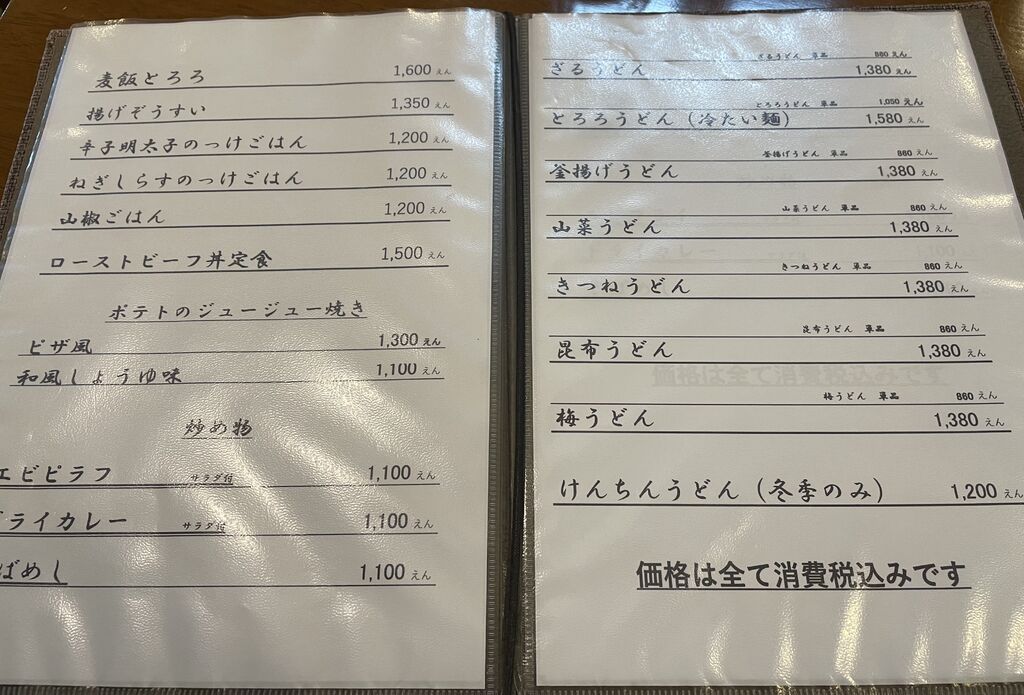 麦飯とろろ 1,600 えん
揚げぞうすい 1,350 えん
辛子明太子のっけごはん 1,200 えん
ねぎしらすのっけごはん 1,200 えん
山椒ごはん 1,200 えん
ローストビーフ丼定食 1,500 えん
ポテトのジュージュー焼き
ピザ風 1,300 えん
和風しょうゆ味 1,100 えん
炒め物
エビピラフ サラダ付 1,100 えん
ドライカレー サラダ付 1,100 えん
ばめし 1,100 えん
ざるうどん 単品 860 えん
ざるうどん 1,380 えん
とろろうどん 単品 1,050 えん
とろろうどん（冷たい麺） 1,580 えん
釜揚げうどん 単品 860 えん
釜揚げうどん 1,380 えん
山菜うどん 単品 860 えん
山菜うどん 1,380 えん
きつねうどん 単品 860 えん
きつねうどん 1,380 えん
昆布うどん 単品 860 えん
昆布うどん 1,380 えん
梅うどん 単品 860 えん
梅うどん 1,380 えん
けんちんうどん（冬季のみ） 1,200 えん
価格は全て消費税込みです